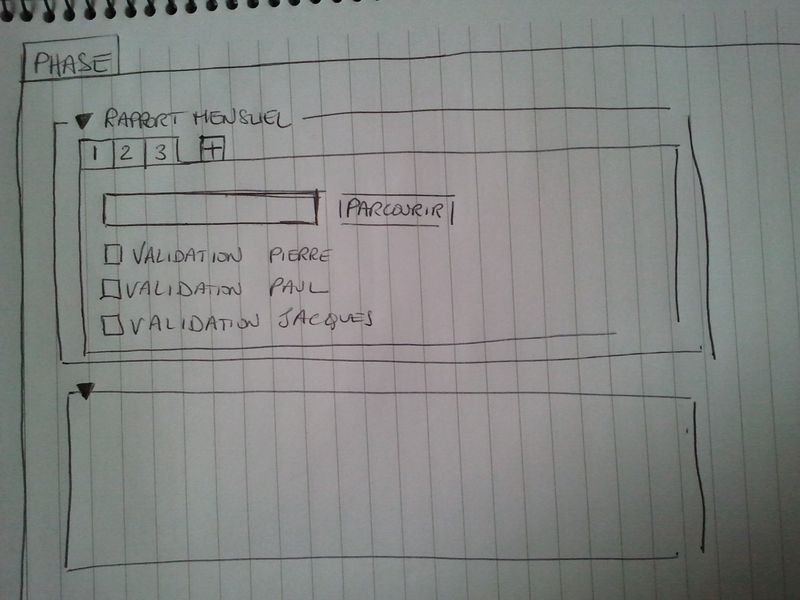 PHASE
▼ RAPPORT MENSUEL
1 2 3 +
PARCOURIR
VALIDATION PIERRE
VALIDATION PAUL
VALIDATION JACQUES